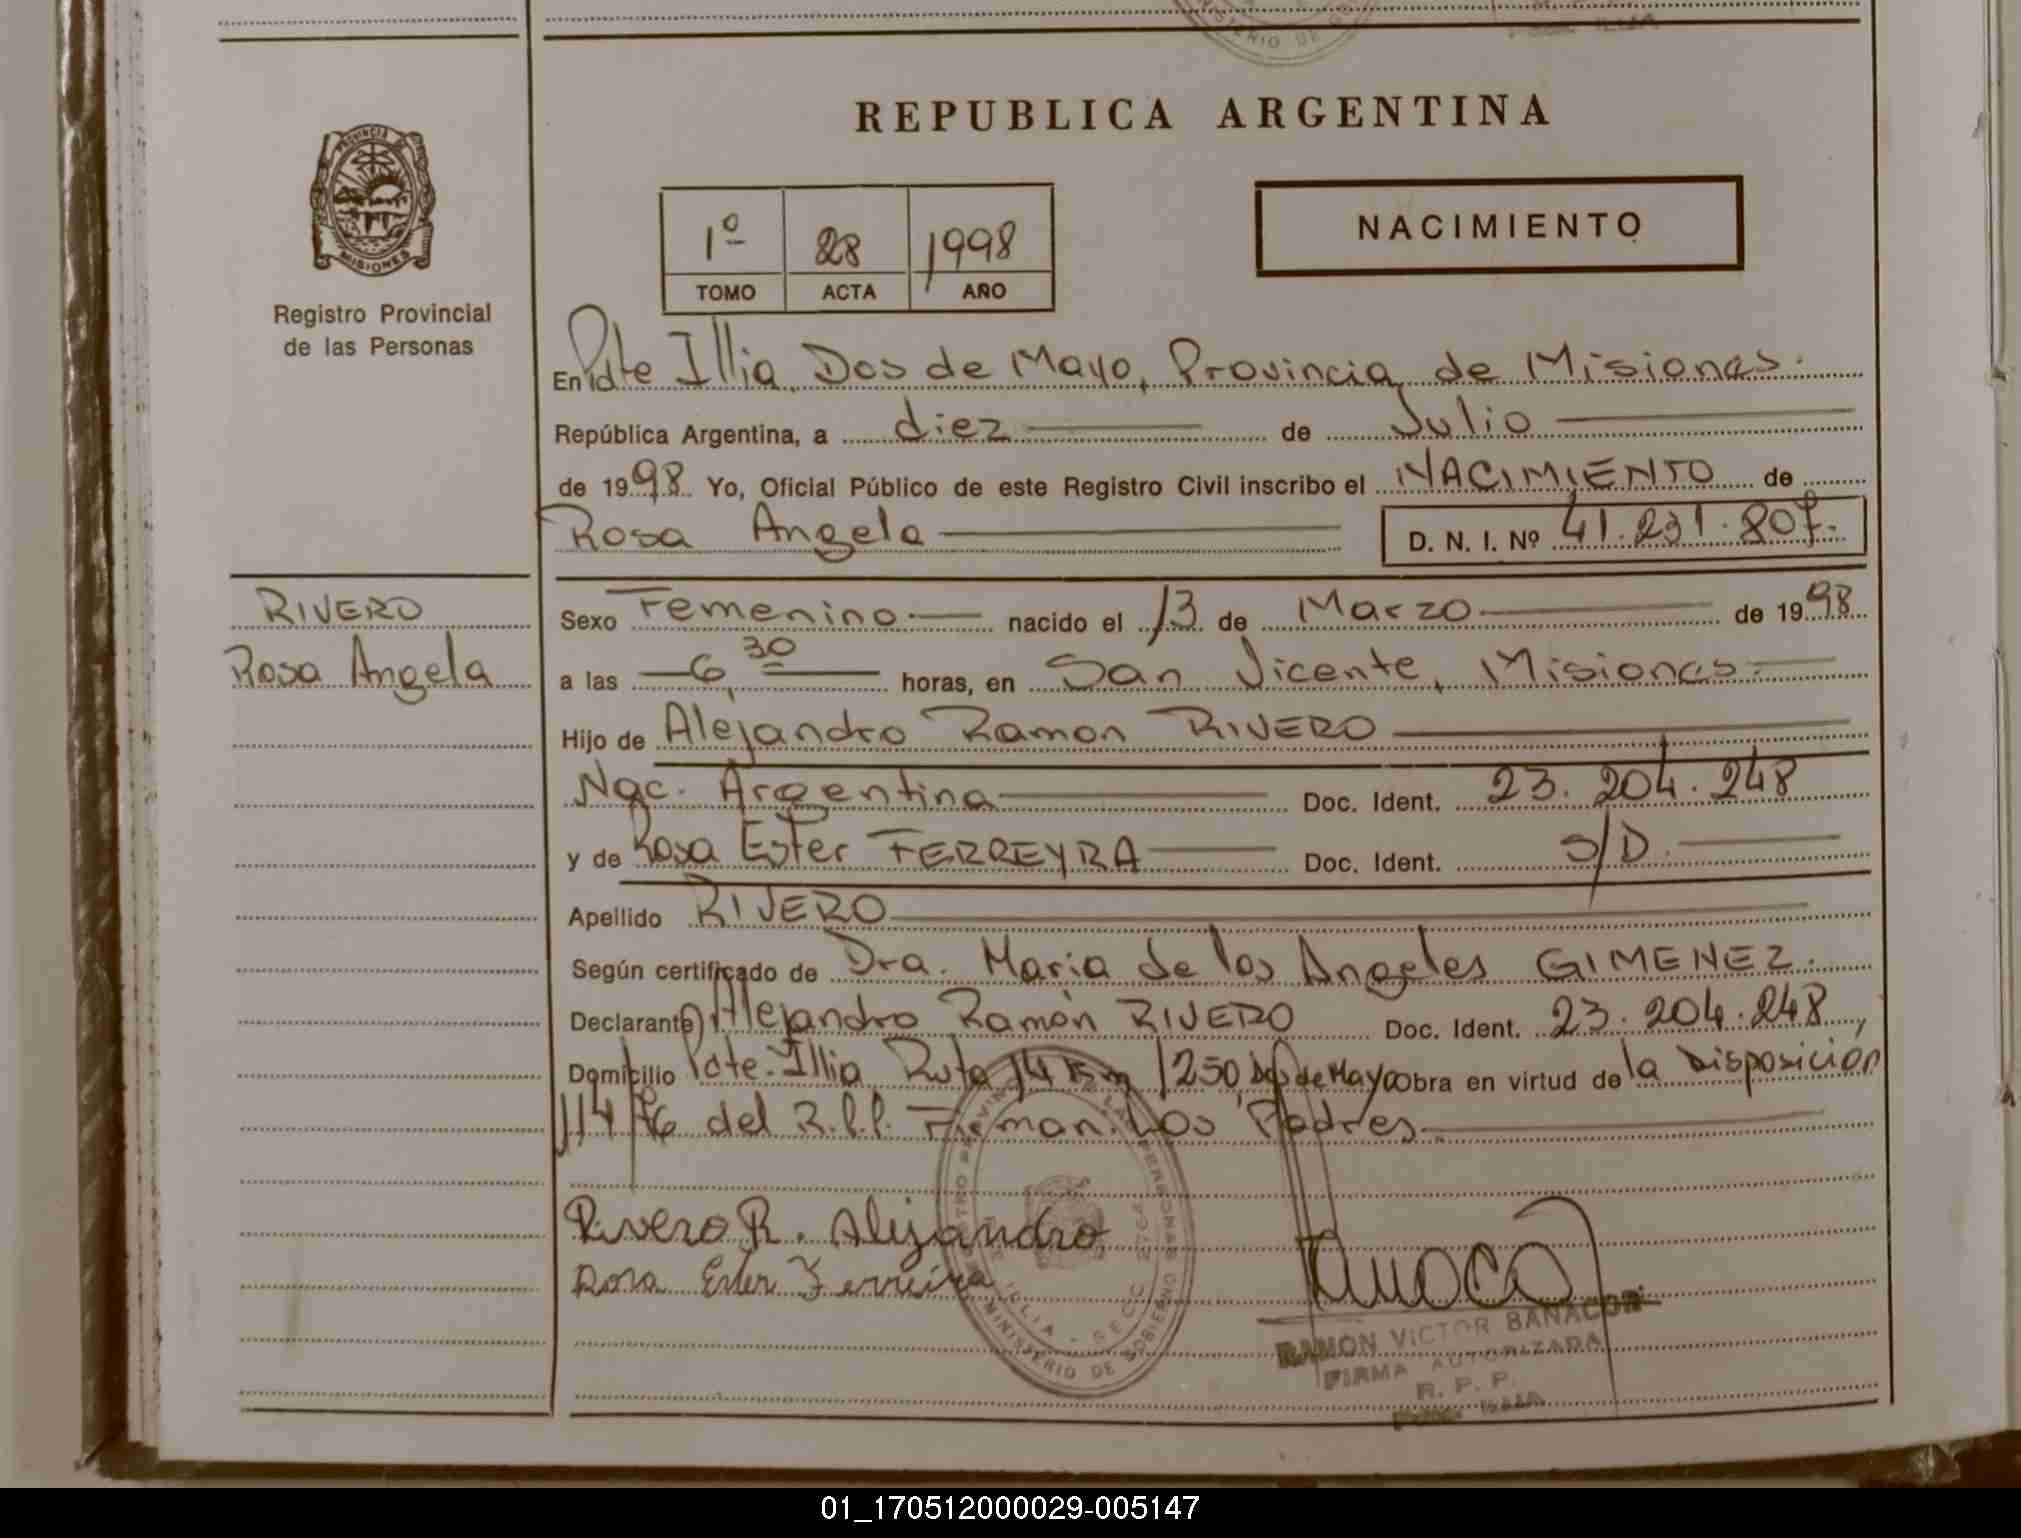 REPUBLICA ARGENTINA
PROVINCIA
MISIONES
Registro Provincial
de las Personas
1º 28 1998
TOMO ACTA AÑO
NACIMIENTO
En Pdte Illia, Dos de Mayo, Provincia de Misiones.
República Argentina, a diez de Julio
de 1998. Yo, Oficial Público de este Registro Civil inscribo el NACIMIENTO de
Rosa Angela D. N. I. Nº 41.231.807.-
RIVERO
Rosa Angela
Sexo Femenino nacido el 13 de Marzo de 1998
a las 6,30 horas, en San Vicente, Misiones.
Hijo de Alejandro Ramon RIVERO
Nac. Argentina Doc. Ident. 23.204.248
y de Rosa Ester FERREYRA Doc. Ident. S/D.
Apellido RIVERO
Según certificado de Dra. Maria de los Angeles GIMENEZ.
Declarante Alejandro Ramón RIVERO Doc. Ident. 23.204.248,
Domicilio Pdte. Illia Ruta 14 Km 1250 Dos de Mayo obra en virtud de la Disposición
114/76 del R.P.P. Firman: Los Padres.
Rivero R. Alejandro
Rosa Ester Ferreira
MINISTERIO DE GOBIERNO
RAMON VICTOR BANACOR
FIRMA AUTORIZADA
R. P. P.
01_170512000029-005147